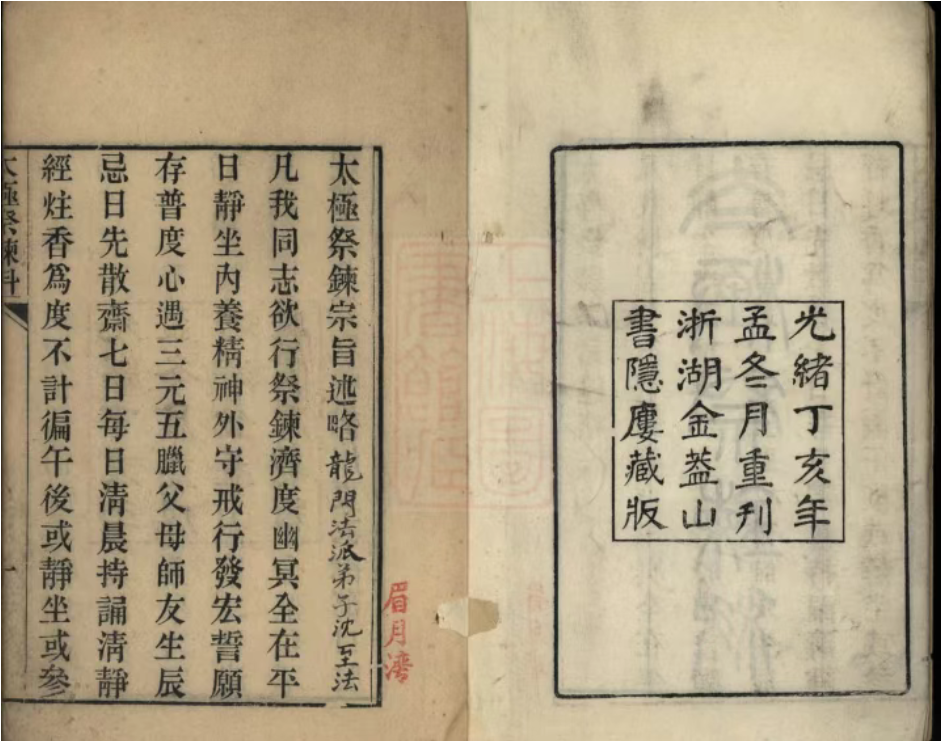 光緒丁亥年
孟冬月重刊
浙湖金葢山
書隱廔藏版
太極祭鍊宗旨述略 龍門法派弟子沈至法
凡我同志欲行祭鍊濟度幽冥全在平
日靜坐內養精神外守戒行發宏誓願
存普度心遇三元五臘父母師友生辰
忌日先散齋七日每日淸晨持誦淸靜
經炷香爲度不計徧午後或靜坐或參
太極祭鍊科
一
眉月灣
上海圖書館藏